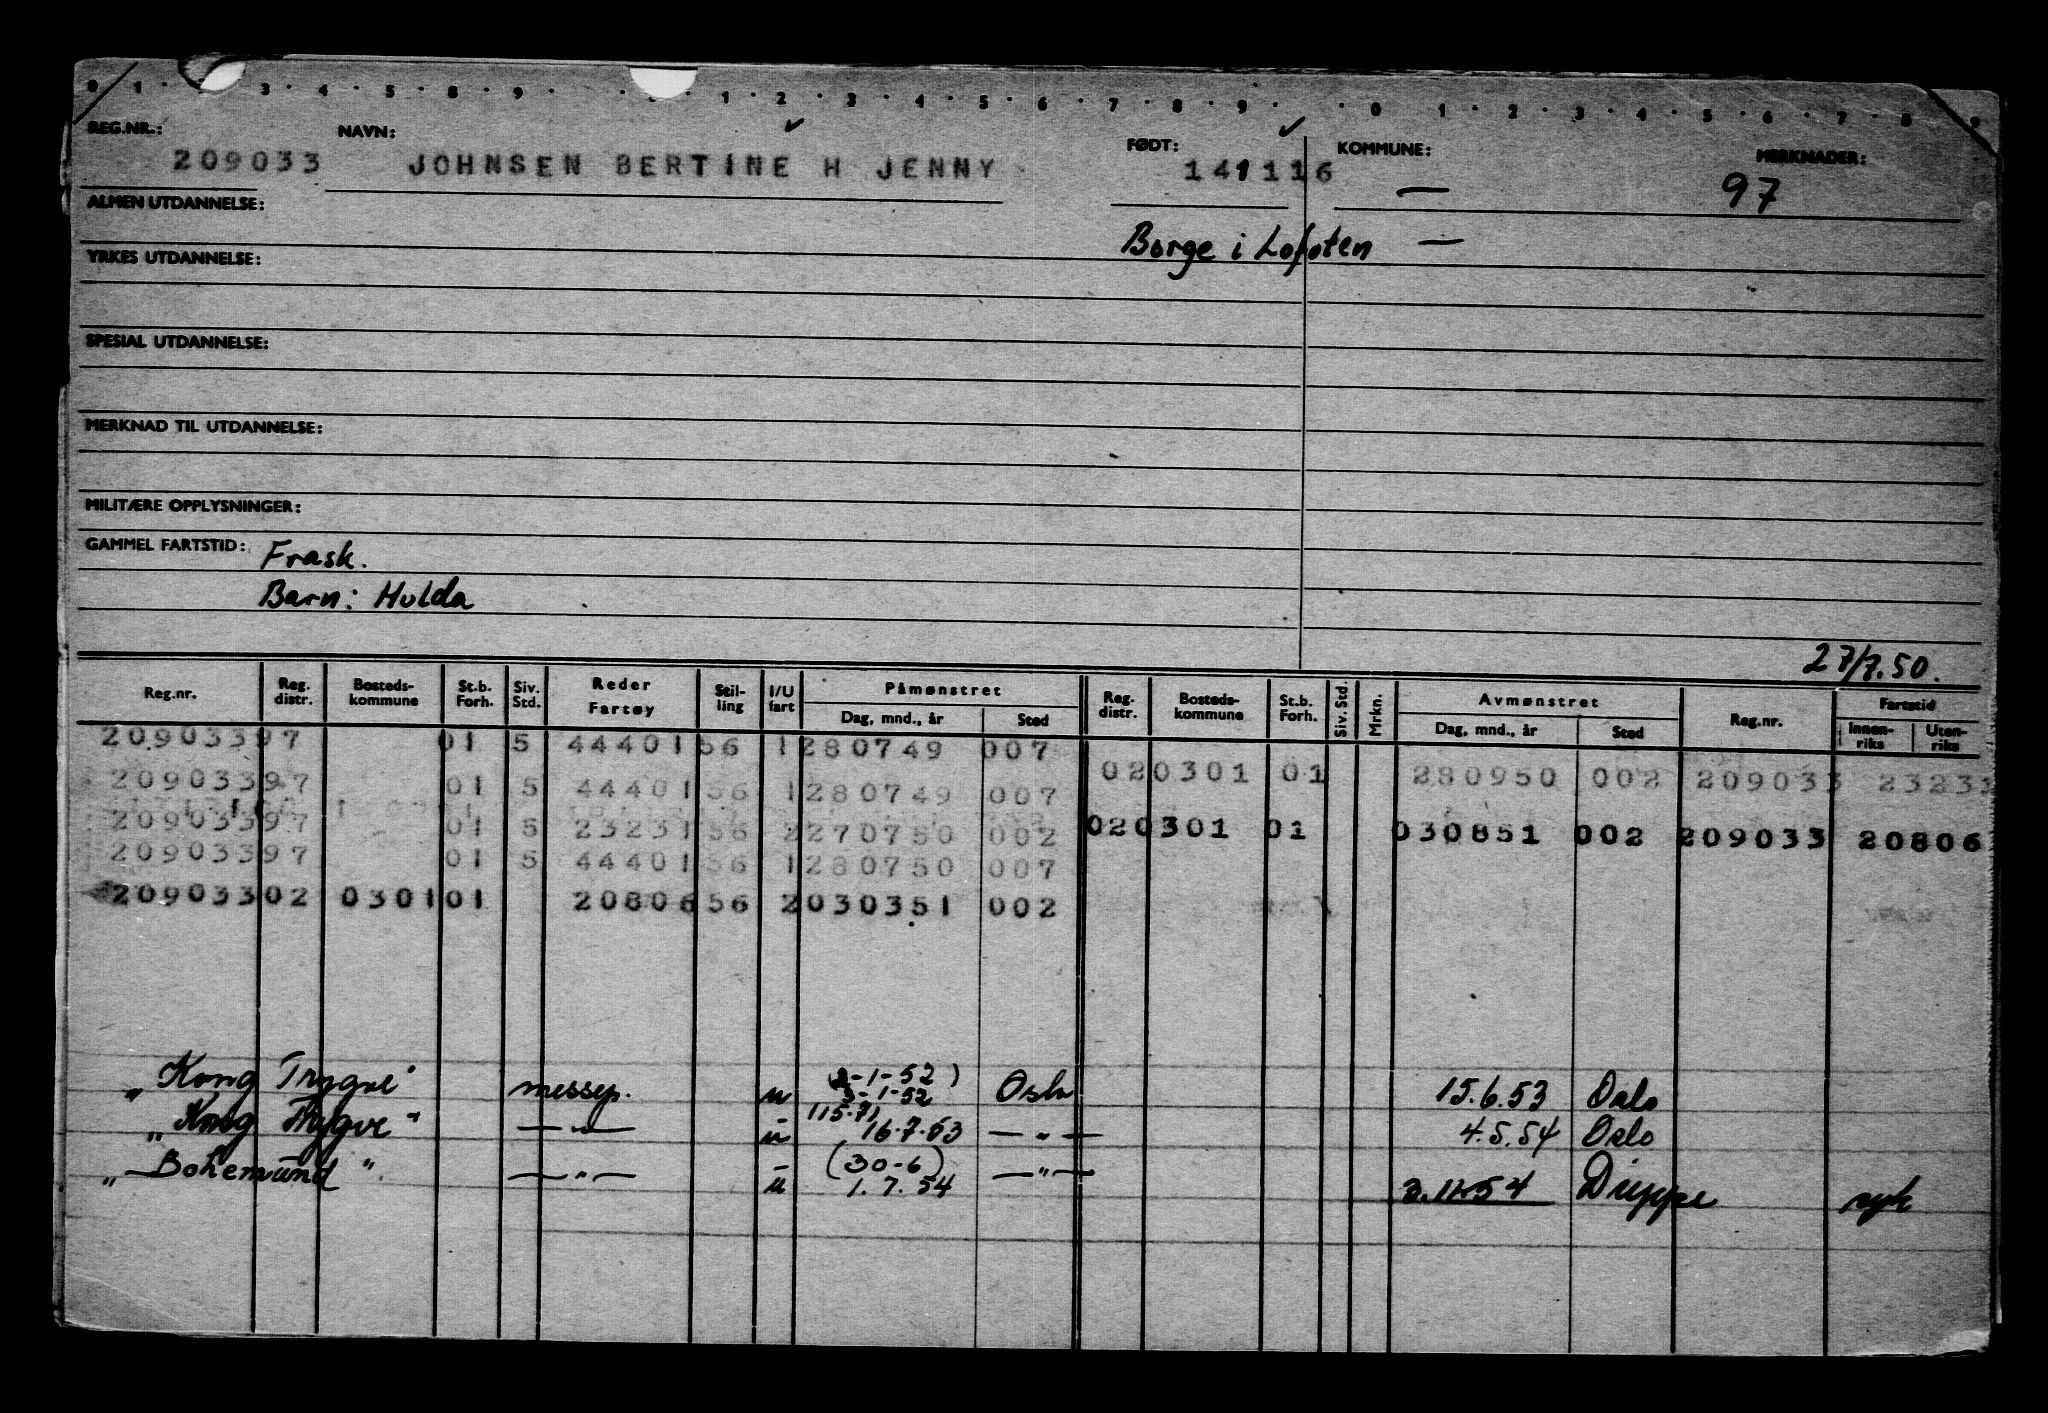 0 1 · · 3 · 4 · 5 · 8 · 9 · · · 1 · 2 · 3 · 4 · 5 · 6 · 7 · 8 · 9 · · 0 · 1 · 2 · 3 · 4 · 5 · 6 · 7 · 8 · 9
REG.NR.: NAVN: FØDT: KOMMUNE: MERKNADER:
209033 JOHNSEN BERTINE H JENNY 141116 — 97
ALMEN UTDANNELSE:
Borge i Lofoten —
YRKES UTDANNELSE:
SPESIAL UTDANNELSE:
MERKNAD TIL UTDANNELSE:
MILITÆRE OPPLYSNINGER:
GAMMEL FARTSTID: Frask.
Barn: Hulda
27/7.50.
Reg.nr. Reg. distr. Bosteds-kommune St.b. Forh. Siv. Std. Reder Fartøy Stil-ling I/U fart Påmønstret Reg. distr. Bosteds-kommune St.b. Forh. Siv. Std. Mrkn. Avmønstret Reg.nr. Fartstid
Dag, mnd., år Sted Dag, mnd., år Sted Innen-riks Uten-riks
20903397 01 5 44401 56 1 280749 007
020301 01 280950 002 209033 23231
20903397 01 5 44401 56 1 280749 007
20903397 01 5 23231 56 2 270750 002
020301 01 030851 002 209033 20806
20903397 01 5 44401 56 1 280750 007
20903302 0301 01 20806 56 2 030351 002
„Kong Trygve" messep. u (2-1-52) 3-1-52 Oslo 15.6.53 Oslo
„Kong Trygve" — „ — u (15.7) 16.7.53 — „ — 4.5.54 Oslo
„Bohemund" — „ — u (30-6) 1.7.54 — „ — 2.11.54 Dieppe syk